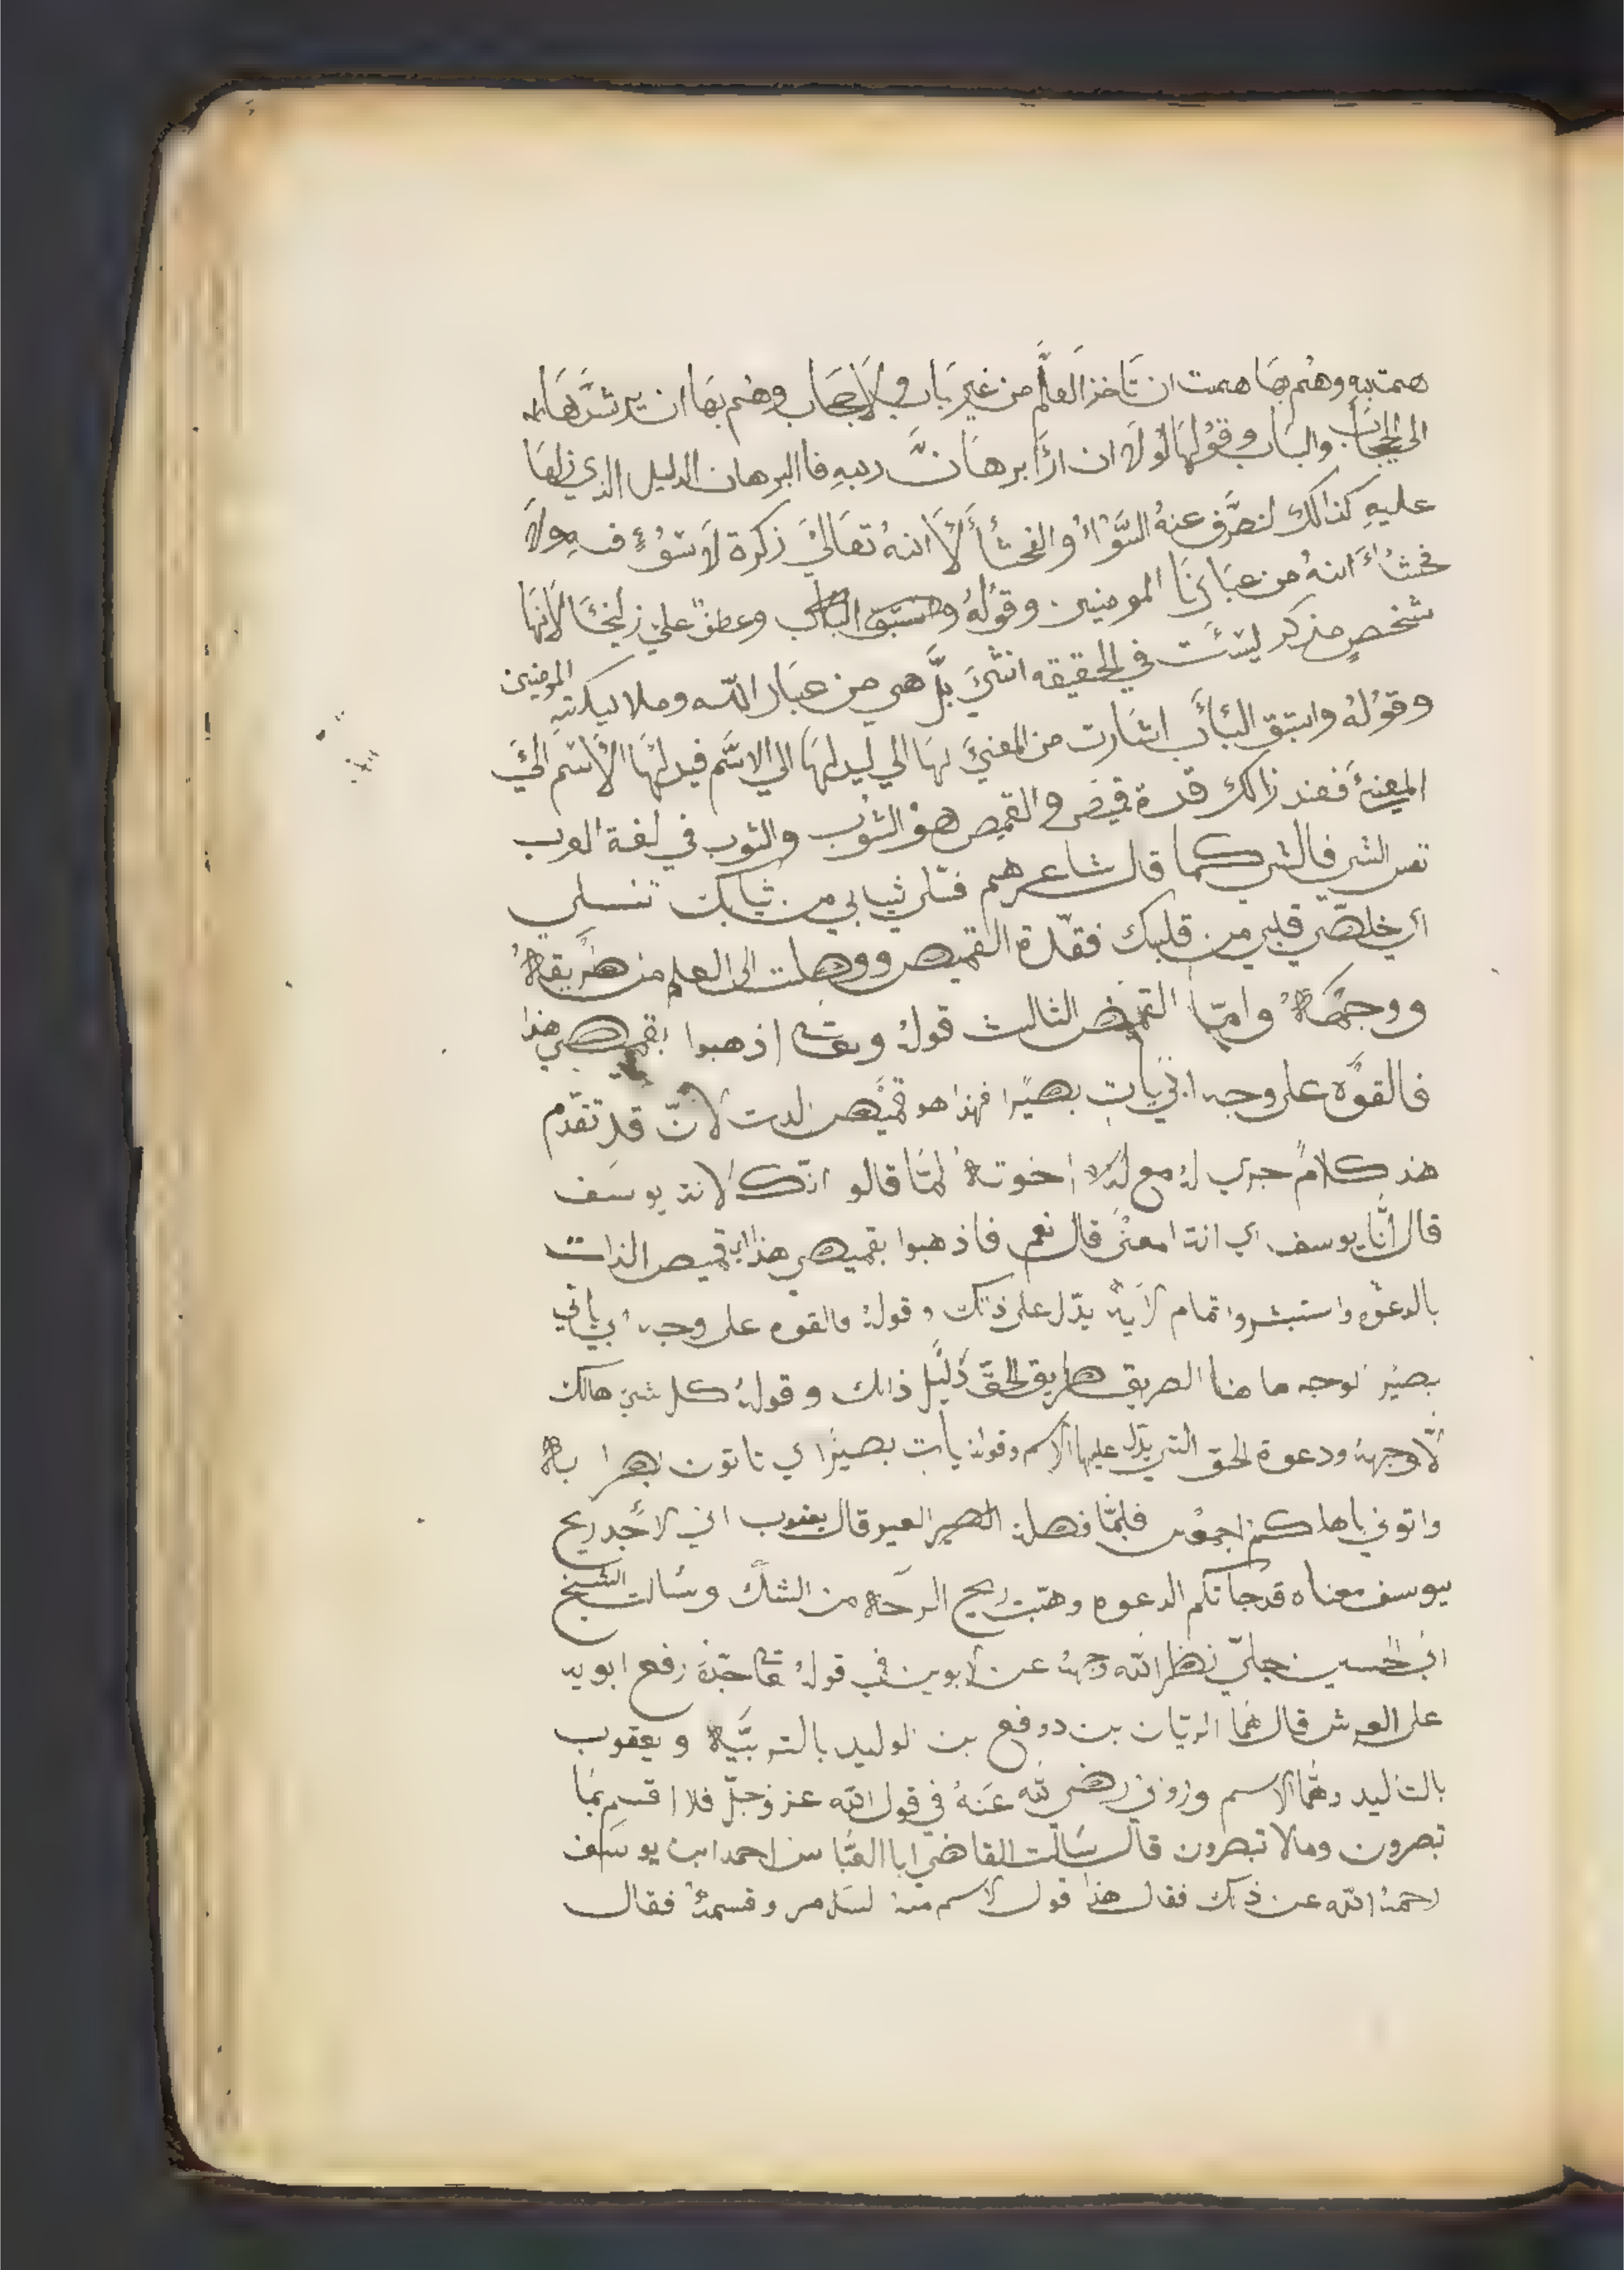 همت به وهم بها همت ان تاخذ العلم من غير باب ولا حجاب وهم بها ان يرشدها
الى الحجاب والباب وقولها لولا ان ارا برهان ربه فا البرهان الدليل الذي دلها
عليه كذالك لنصرف عنه السوء والفحشا لا انه تعالى ذكرة لا سوء فيه ولا
فحشاء انه من عبادنا المومنين وقوله واستبق الباب وعطف على زليخا لانها
شخص مذكر ليست في الحقيقه انثى بل هي من عباد الله وملايكته المومنين
وقوله واستبق البأب اشارت من المعنى لها الي ليدلها الى الاسم فيدلها الاسم الى
المعنى فعند ذالك قدة قميص والقميص هو الثوب والثوب في لغة العرب
كما قال شاعرهم فسلي ثيابي من ثيابك تنسلي
اي خلصي قلبي من قلبك فقدة القميص ووصلت الى العلم من طريقه
ووجهه واما القميص الثالث قوله اذهبوا بقميصي هذا
فالقوه على وجه ابي يات بصيرا فهذا هو قميص لان قد تقدم
هذ كلام جرى له مع اخوته لما قالو انك لانت يوسف
قال أنا يوسف اي انت امعنى قال نعم فاذهبوا بقميصي هذا اي قميص الذات
بالدعوه واستبشروا تمام الايه يدل على ذلك وقوله فالقوه على وجه ابي ياتي
بصير الوجه ها هنا الطريق طريق الحق دليل ذالك وقوله كل شي هالك
الا وجهه ودعوة الحق التي يدل عليها الاسم وقوله يات بصيرا اي تاتون به
واتوني باهلكم اجمعين فلما فصلة العير قال يعقوب اني لاجد ريح
يوسف معناه قد جاتكم الدعوه وهبت ريح الرحمة من الشك وسالت الشيخ
ابي الحسين جلي نظر الله وجهه عن ابوين في قوله رفع ابويه
على العرش قال هما الريان بن دوفع بن الوليد بالتربية ويعقوب
بالتاليد وهما الاسم رضي الله عنه في قول الله عز وجل فلا اقسم بما
تبصرون ومالا تبصرون قال سالت القاضي ابا العباس احمد ابن يوسف
رحمه الله عن ذلك فقال هذا قول الاسم منه وقسمه فقال